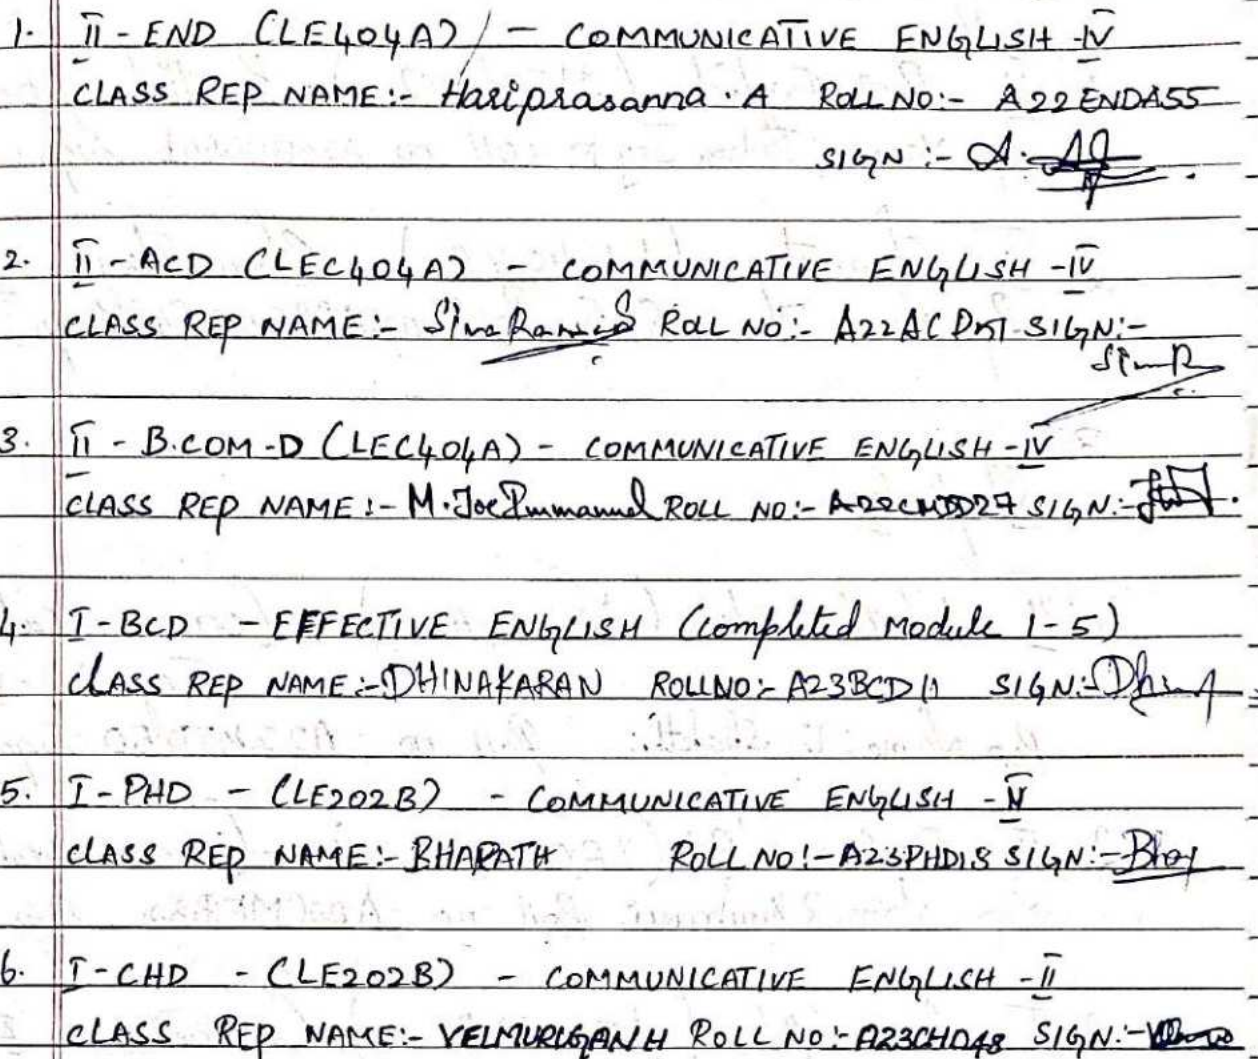 1. II - END (LE404A) - COMMUNICATIVE ENGLISH - IV
CLASS REP NAME:- Hariprasanna . A ROLL NO:- A22ENDA55
SIGN :- A.
2. II - ACD (LEC404A) - COMMUNICATIVE ENGLISH - IV
CLASS REP NAME:- ROLL NO:- SIGN:-
3. II - B.COM - D (LEC404A) - COMMUNICATIVE ENGLISH - IV
CLASS REP NAME :- M. Joe Immanuel ROLL NO:- SIGN:-
4. I - BCD - EFFECTIVE ENGLISH (completed Module 1 - 5)
CLASS REP NAME :- DHINAKARAN ROLLNO:- A23BCD11 SIGN:-
5. I - PHD - (LE202B) - COMMUNICATIVE ENGLISH - II
CLASS REP NAME:- BHARATH ROLL NO:- A23PHD18 SIGN:-
6. I - CHD - (LE202B) - COMMUNICATIVE ENGLISH - II
CLASS REP NAME:- VELMURUGAN H ROLL NO:- A23CHD48 SIGN:-